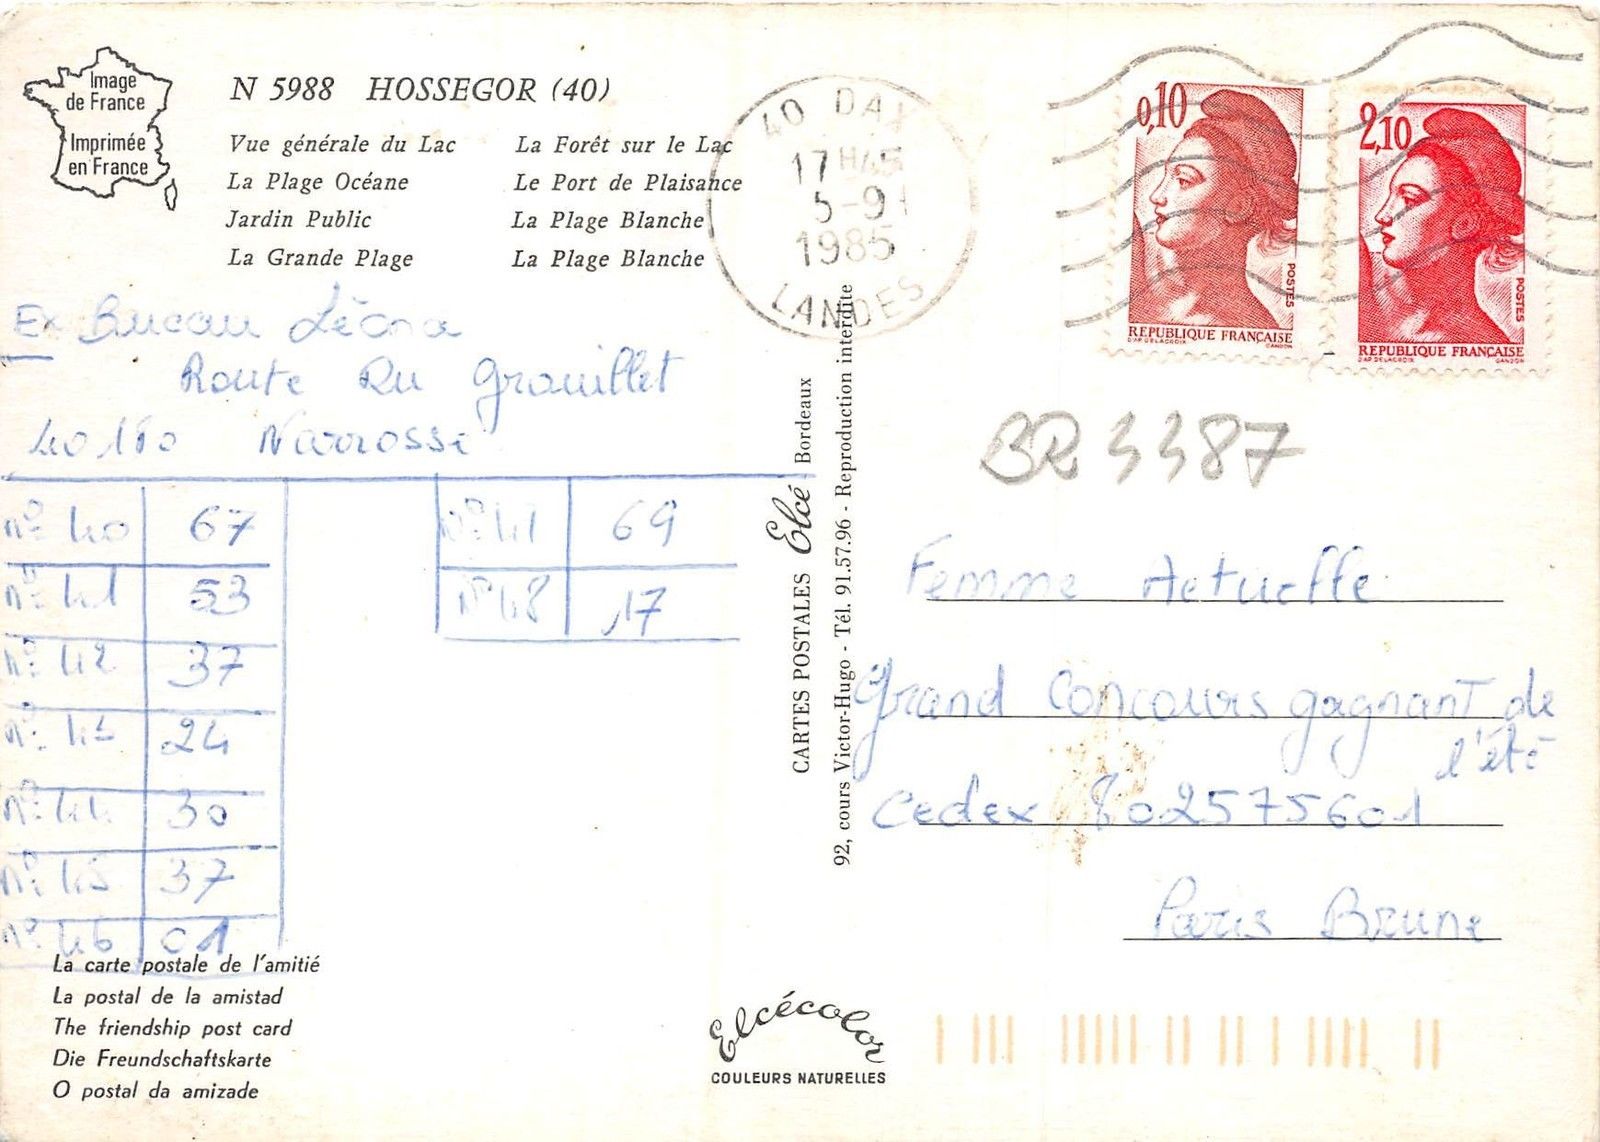 Image
de France
Imprimée
en France
N 5988 HOSSEGOR (40)
Vue générale du Lac
La Plage Océane
Jardin Public
La Grande Plage
La Forêt sur le Lac
Le Port de Plaisance
La Plage Blanche
La Plage Blanche
40 DAX
17H45
5-9
1985
LANDES
0,10
POSTES
REPUBLIQUE FRANÇAISE
D'AP DELACROIX GANDON
2,10
POSTES
REPUBLIQUE FRANÇAISE
D'AP DELACROIX GANDON
Ex Bucau Léona
Route Du Grouillet
40180 Narrosse
n° 40 67
n° 41 53
n° 42 37
n° 43 24
n° 44 30
n° 45 37
n° 46 01
N° 47 69
N° 48 17
CARTES POSTALES Elcé Bordeaux
92, cours Victor-Hugo - Tél. 91.57.96 - Reproduction interdite
BR 3387
Femme Actuelle
Grand Concours gagnant de
l'été
Cedex 802575601
Paris Brune
La carte postale de l'amitié
La postal de la amistad
The friendship post card
Die Freundschaftskarte
O postal da amizade
Elcécolor
COULEURS NATURELLES